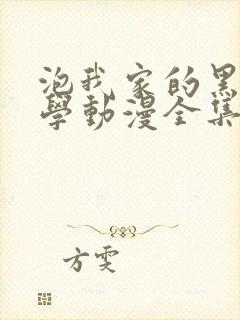 泡我家的黑
學動漫全集
方雯